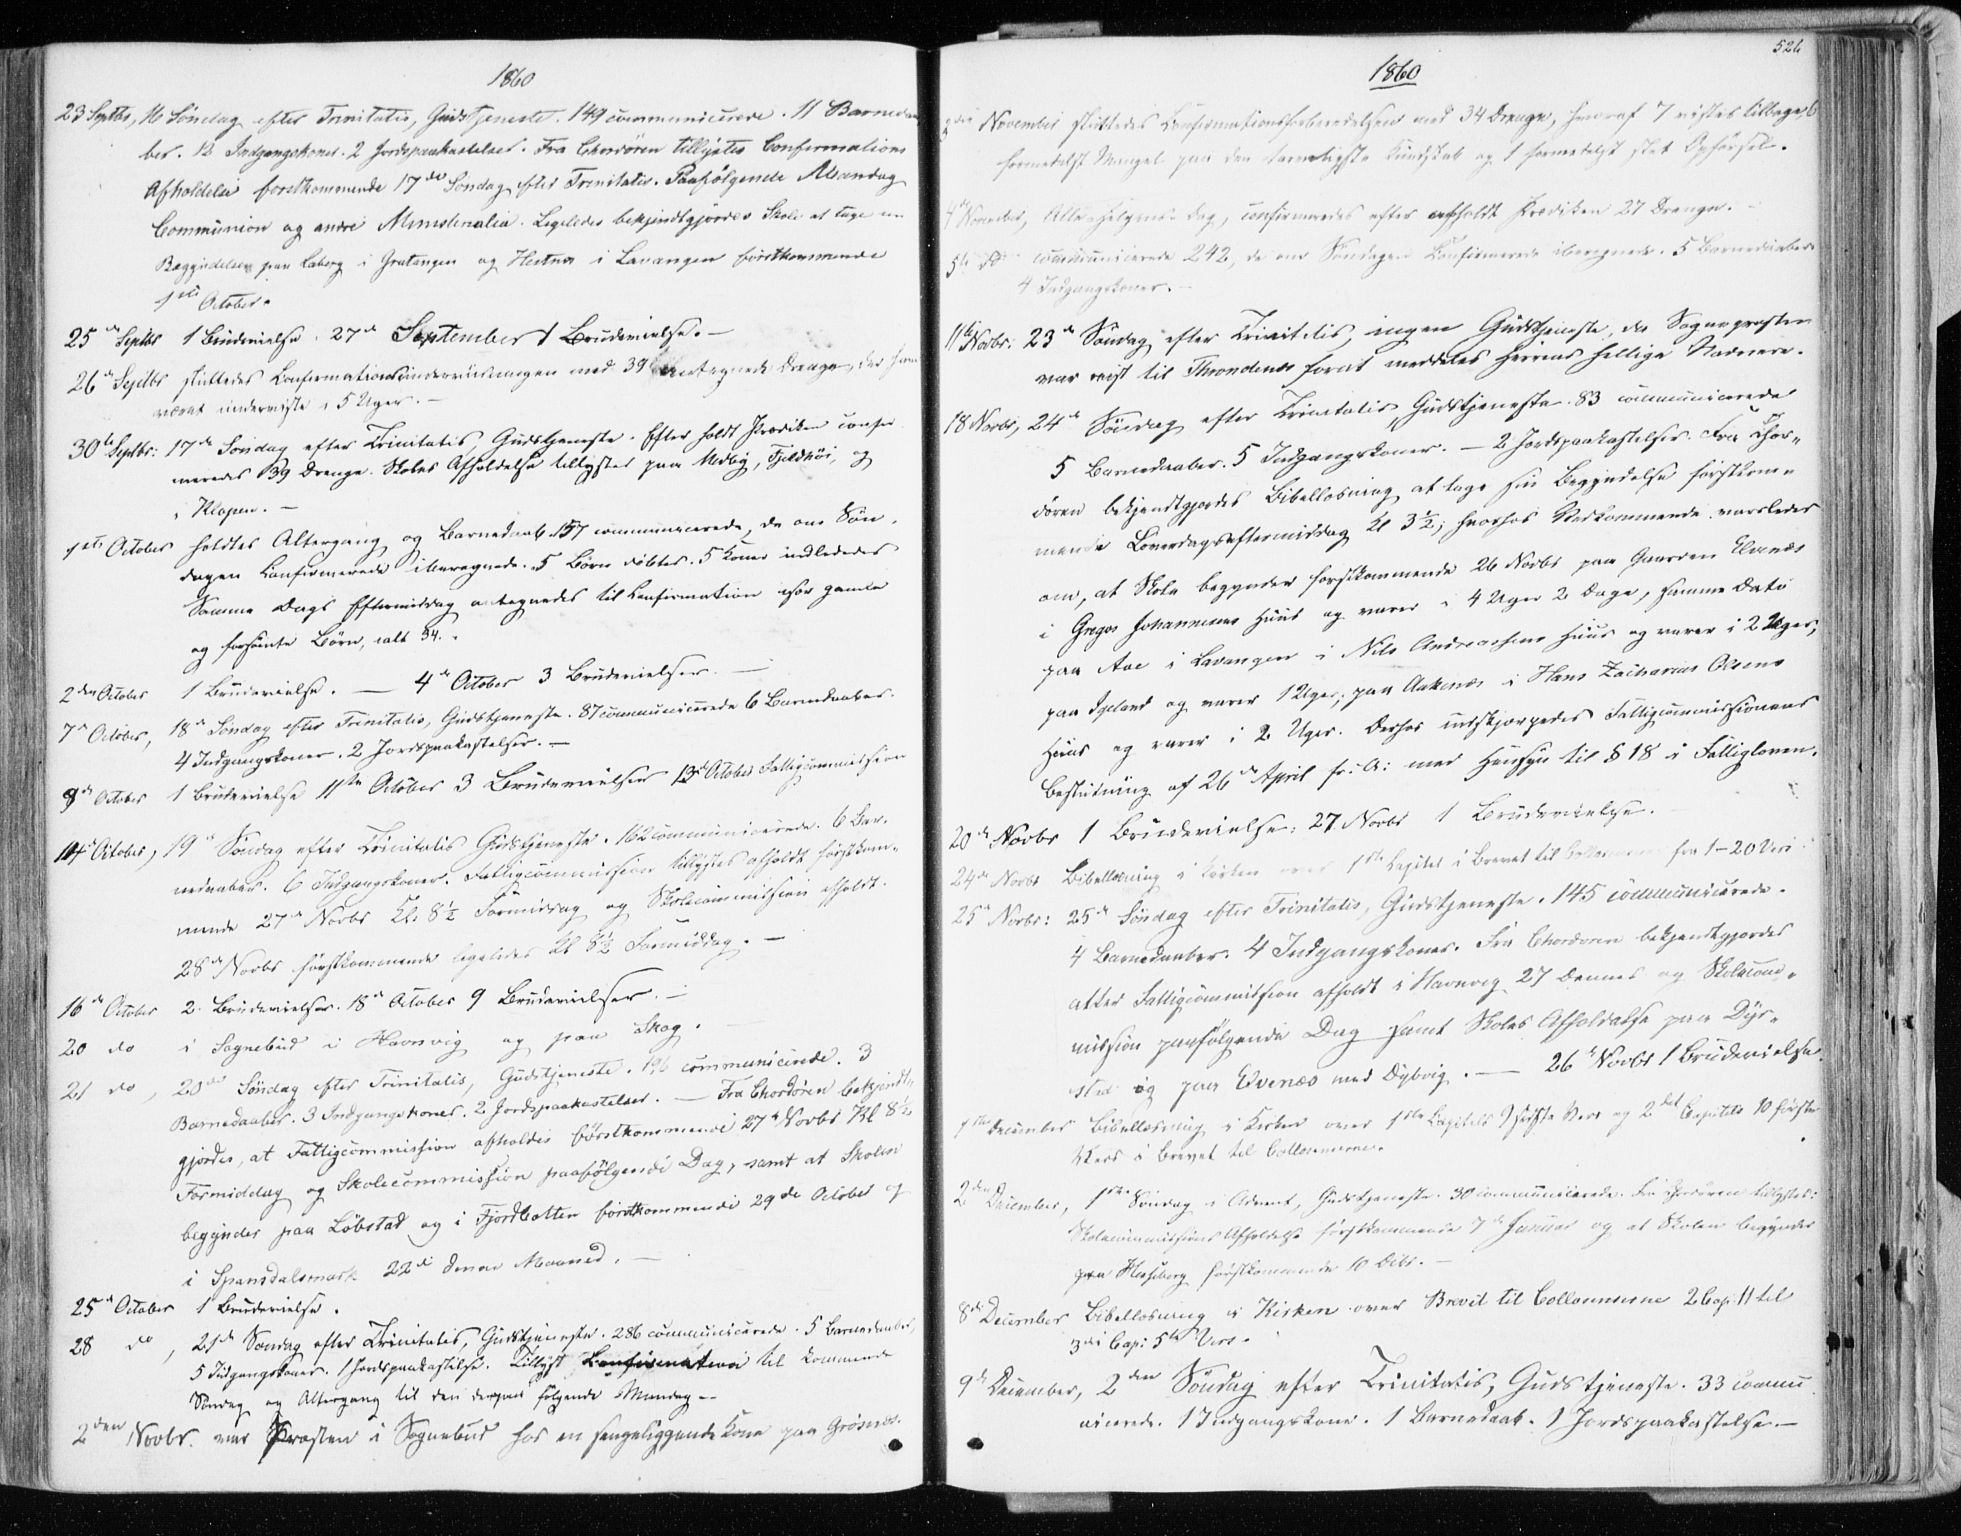 1860
23 Septbr, 16 Söndag efter Trinitatis, Gudstjeneste. 149 communicerede. 11 Barnedaa
ber. 12 Indgangskoner. 2 Jordspaakastelser. Fra Chordören tillystes Confirmations
Afholdelse forstkommende 17de Söndag efter Trinitatis. Paafölgende Mandag
Communion og andre Ministerialia. Ligeledes bekjendtgjordes Skole at tage sin
Begyndelse paa Laberg i Gratangen og Hestnes i Lavangen förstkommende
1ste October.
25de Septbr 1 Brudevielse. 27de September 1 Brudevielse. —
26de Septbr sluttedes Confirmationsunderviisningen med 39 antegnede Drenge, der have
været underviste i 5 Uger. —
30te Septbr: 17de Söndag efter Trinitatis Gudstjeneste. Efter holdt Prædiken confir
meredes 39 Drenge. Skoles Afholdelse tillystes paa Medby, Fjeldhöi, og
i Klopen. —
1ste October holdtes Altergang og Barnedaab. 157 communicerede, de om Sön-
dagen Confirmerede iberegnede. 5 Börn döbtes. 5 Koner indlededes
Samme Dags Eftermiddag antegnedes til Confirmation gamle
og forsömte Börn, ialt 34.
2den October 1 Brudevielse. — 4de October 3 Brudevielser. —
7de October, 18de Söndag efter Trinitatis, Gudstjeneste. 87 communicerede 6 Barnedaaber.
4 Indgangskoner. 2 Jordspaakastelser. —
9de October 1 Brudevielse 11te October 3 Brudevielser 13de October Fattigcommission
14de October, 19de Söndag efter Trinitatis Gudstjeneste. 162 communicerede. 6 Bar-
nedaaber. 6 Indgangskoner. Fattigcommission tillystes afholdt förstkom-
mende 27de Novbr Kl: 8½ Formiddag og Skolecommission afholdt
28de Novbr förstkommende ligeledes Kl 8½ Formiddag. —
16de October 2 Brudevielser. 18de October 9 Brudevielser. —
20 do i Sognebud i Havnvig og paa Skog. —
21 do, 20de Söndag efter Trinitatis, Gudstjeneste. 196 communicerede. 3
Barnedaaber. 3 Indgangskoner. 2 Jordspaakastelser. — Fra Chordören bekjendt-
gjordes, at Fattigcommission afholdes förstkommende 27de Novbr Kl 8½
Formiddag og Skolecommission paafölgende Dag, samt at Skolen
begynder paa Löbstad og i Fjordbotten förstkommende 29de October og
i Spansdalsmark 22de denne Maaned. —
25de October 1 Brudevielse.
28 do, 21de Söndag efter Trinitatis, Gudstjeneste. 286 communicerede. 5 Barnedaaber,
5 Indgangskoner. 1 Jordspaakastelse. Tillyst Confirmation til kommende
Söndag og Altergang til den derpaa fölgende Mandag —
2den Novbr. var Præsten i Sognebud hos en sengeliggende Kone paa Grönes.
526
1860
2den November sluttedes Confirmationsforberedelsen med 34 Drenge, hvoraf 7 viistes tilbage, 6
formedelst Mangel paa den Kundskab og 1 formedelst slet Opförsel.
4de November, Alle Helgens Dag, confirmeredes efter afholdt Prædiken 27 Drenge. —
5te do communicerede 242, de om Söndagen Confirmerede iberegnede. 5 Barnedaaber
4 Indgangskoner. —
11te Novbr: 23de Söndag efter Trinitatis, ingen Gudstjeneste, da Sognepræsten
var reist til Throndenes forat meddeles Herrens hellige Nadvere.
18 Novbr, 24de Söndag efter Trinitatis, Gudstjeneste. 83 communicerede
5 Barnedaaber. 5 Indgangskoner. — 2 Jordspaakastelser. Fra Chor-
dören bekjendtgjordes Bibellæsning at tage sin Begyndelse förstkom-
mende Löverdagseftermiddag Kl 3½; hvorhos Vedkommende varsledes
om, at Skole begynder forstkommende 26 Novbr paa Gaarden Elvenæs
i Gregos Johannesens Huus og varer i 4 Uger 2 Dage, samme Dato
paa Aae i Lavangen i Nils Andreassens Huus og varer i 2 Uger,
paa Igeland og varer 1 Uger, paa Aakenæs i Hans Zacharias Olsens
Huus og varer i 2 Uger. Derhos indskjærpedes Fattigcommissionens
Beslutning af 26de April f: A: med Hensyn til § 18 i Fattigloven.
20de Novbr 1 Brudevielse: 27 Novbr 1 Brudevielse.
24de Novbr Bibellæsning i Kirken over 1ste Capitel i Brevet til Collosenserne fra 1–20 Vers
25de Novbr: 25de Söndag efter Trinitatis, Gudstjeneste. 145 communicerede.
4 Barnedaaber. 4 Indgangskoner. Fra Chordören bekjendtgjordes
atter Fattigcommission afholdt i Havnvig 27 dennes og Skolecom-
mission paafölgende Dag samt Skoles Afholdelse paa Dyr-
sted og paa Evenæs med Dybvig. — 26de Novbr 1 Brudevielse.
1ste December Bibellæsning i Kirken over 1ste Capitels 9 sidste Vers og 2det Capitels 10 förste
Vers i Brevet til Collosenserne.
2den December, 1ste Söndag i Advent, Gudstjeneste. 30 communicerede. Fra Chordören tillystes:
Skolecommissions Afholdelse förstkommende 7de Januar og at Skolen begynder
paa Hesseberg förstkommende 10 Debr. —
8de December Bibellæsning i Kirken over Brevet til Collosenserne 2 Cap: 11 til
3die Cap: 5te Vers.
9de December, 2den Söndag efter Trinitatis, Gudstjeneste. 33 commu
nicerede. 1 Indgangskone. 1 Barnedaab. 1 Jordspaakastelse. —